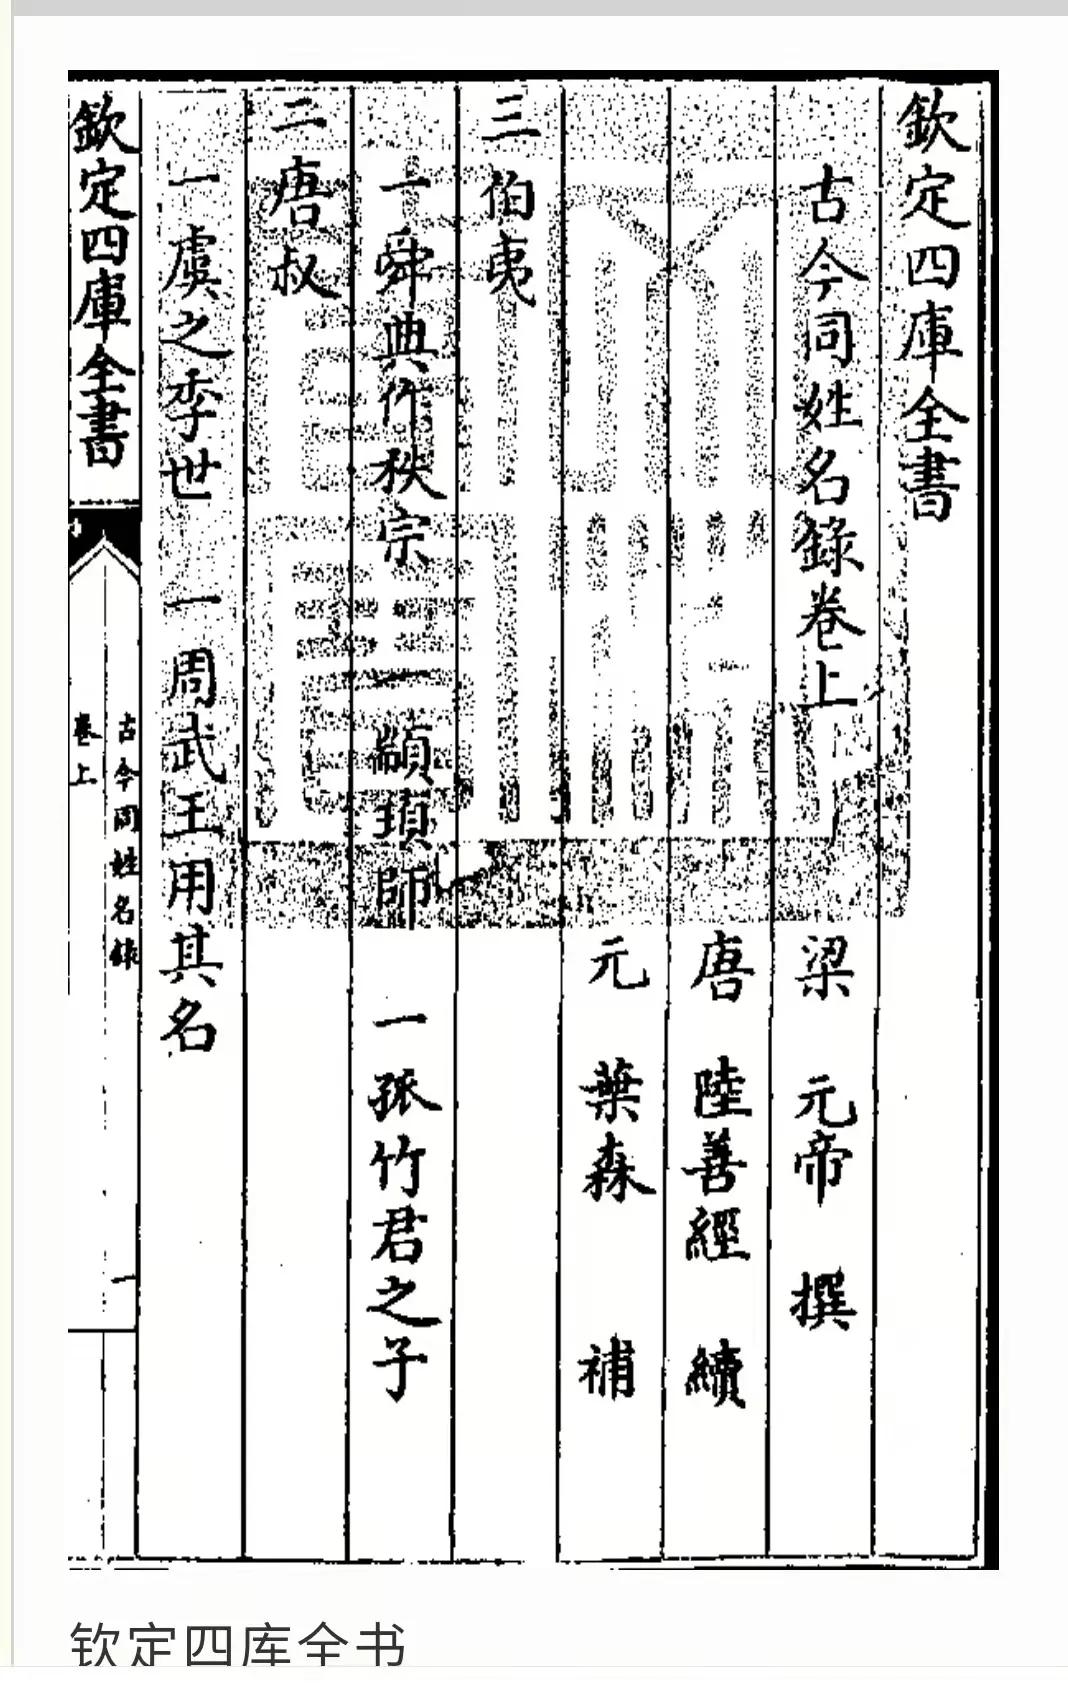 欽定四庫全書
古今同姓名錄卷上
梁 元帝 撰
唐 陸善經 續
元 葉森 補
三伯夷
一舜典作秩宗 一顓頊師 一孤竹君之子
二唐叔
一虞之季世 一周武王用其名
欽定四庫全書
古今同姓名錄
卷上
一
钦定四库全书